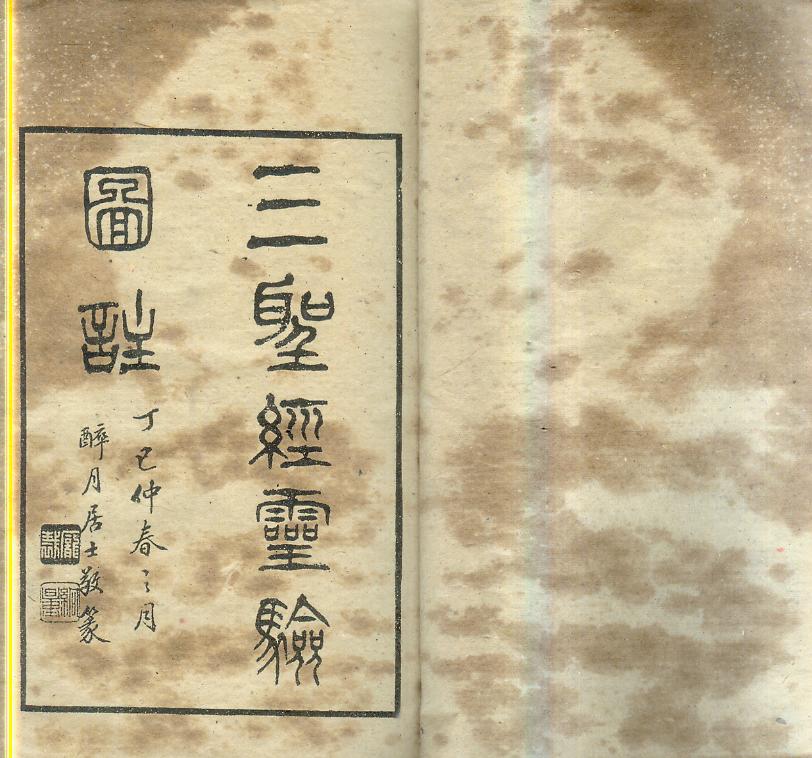 三聖經靈驗
圖註
丁巳仲春之月
醉月居士敬篆